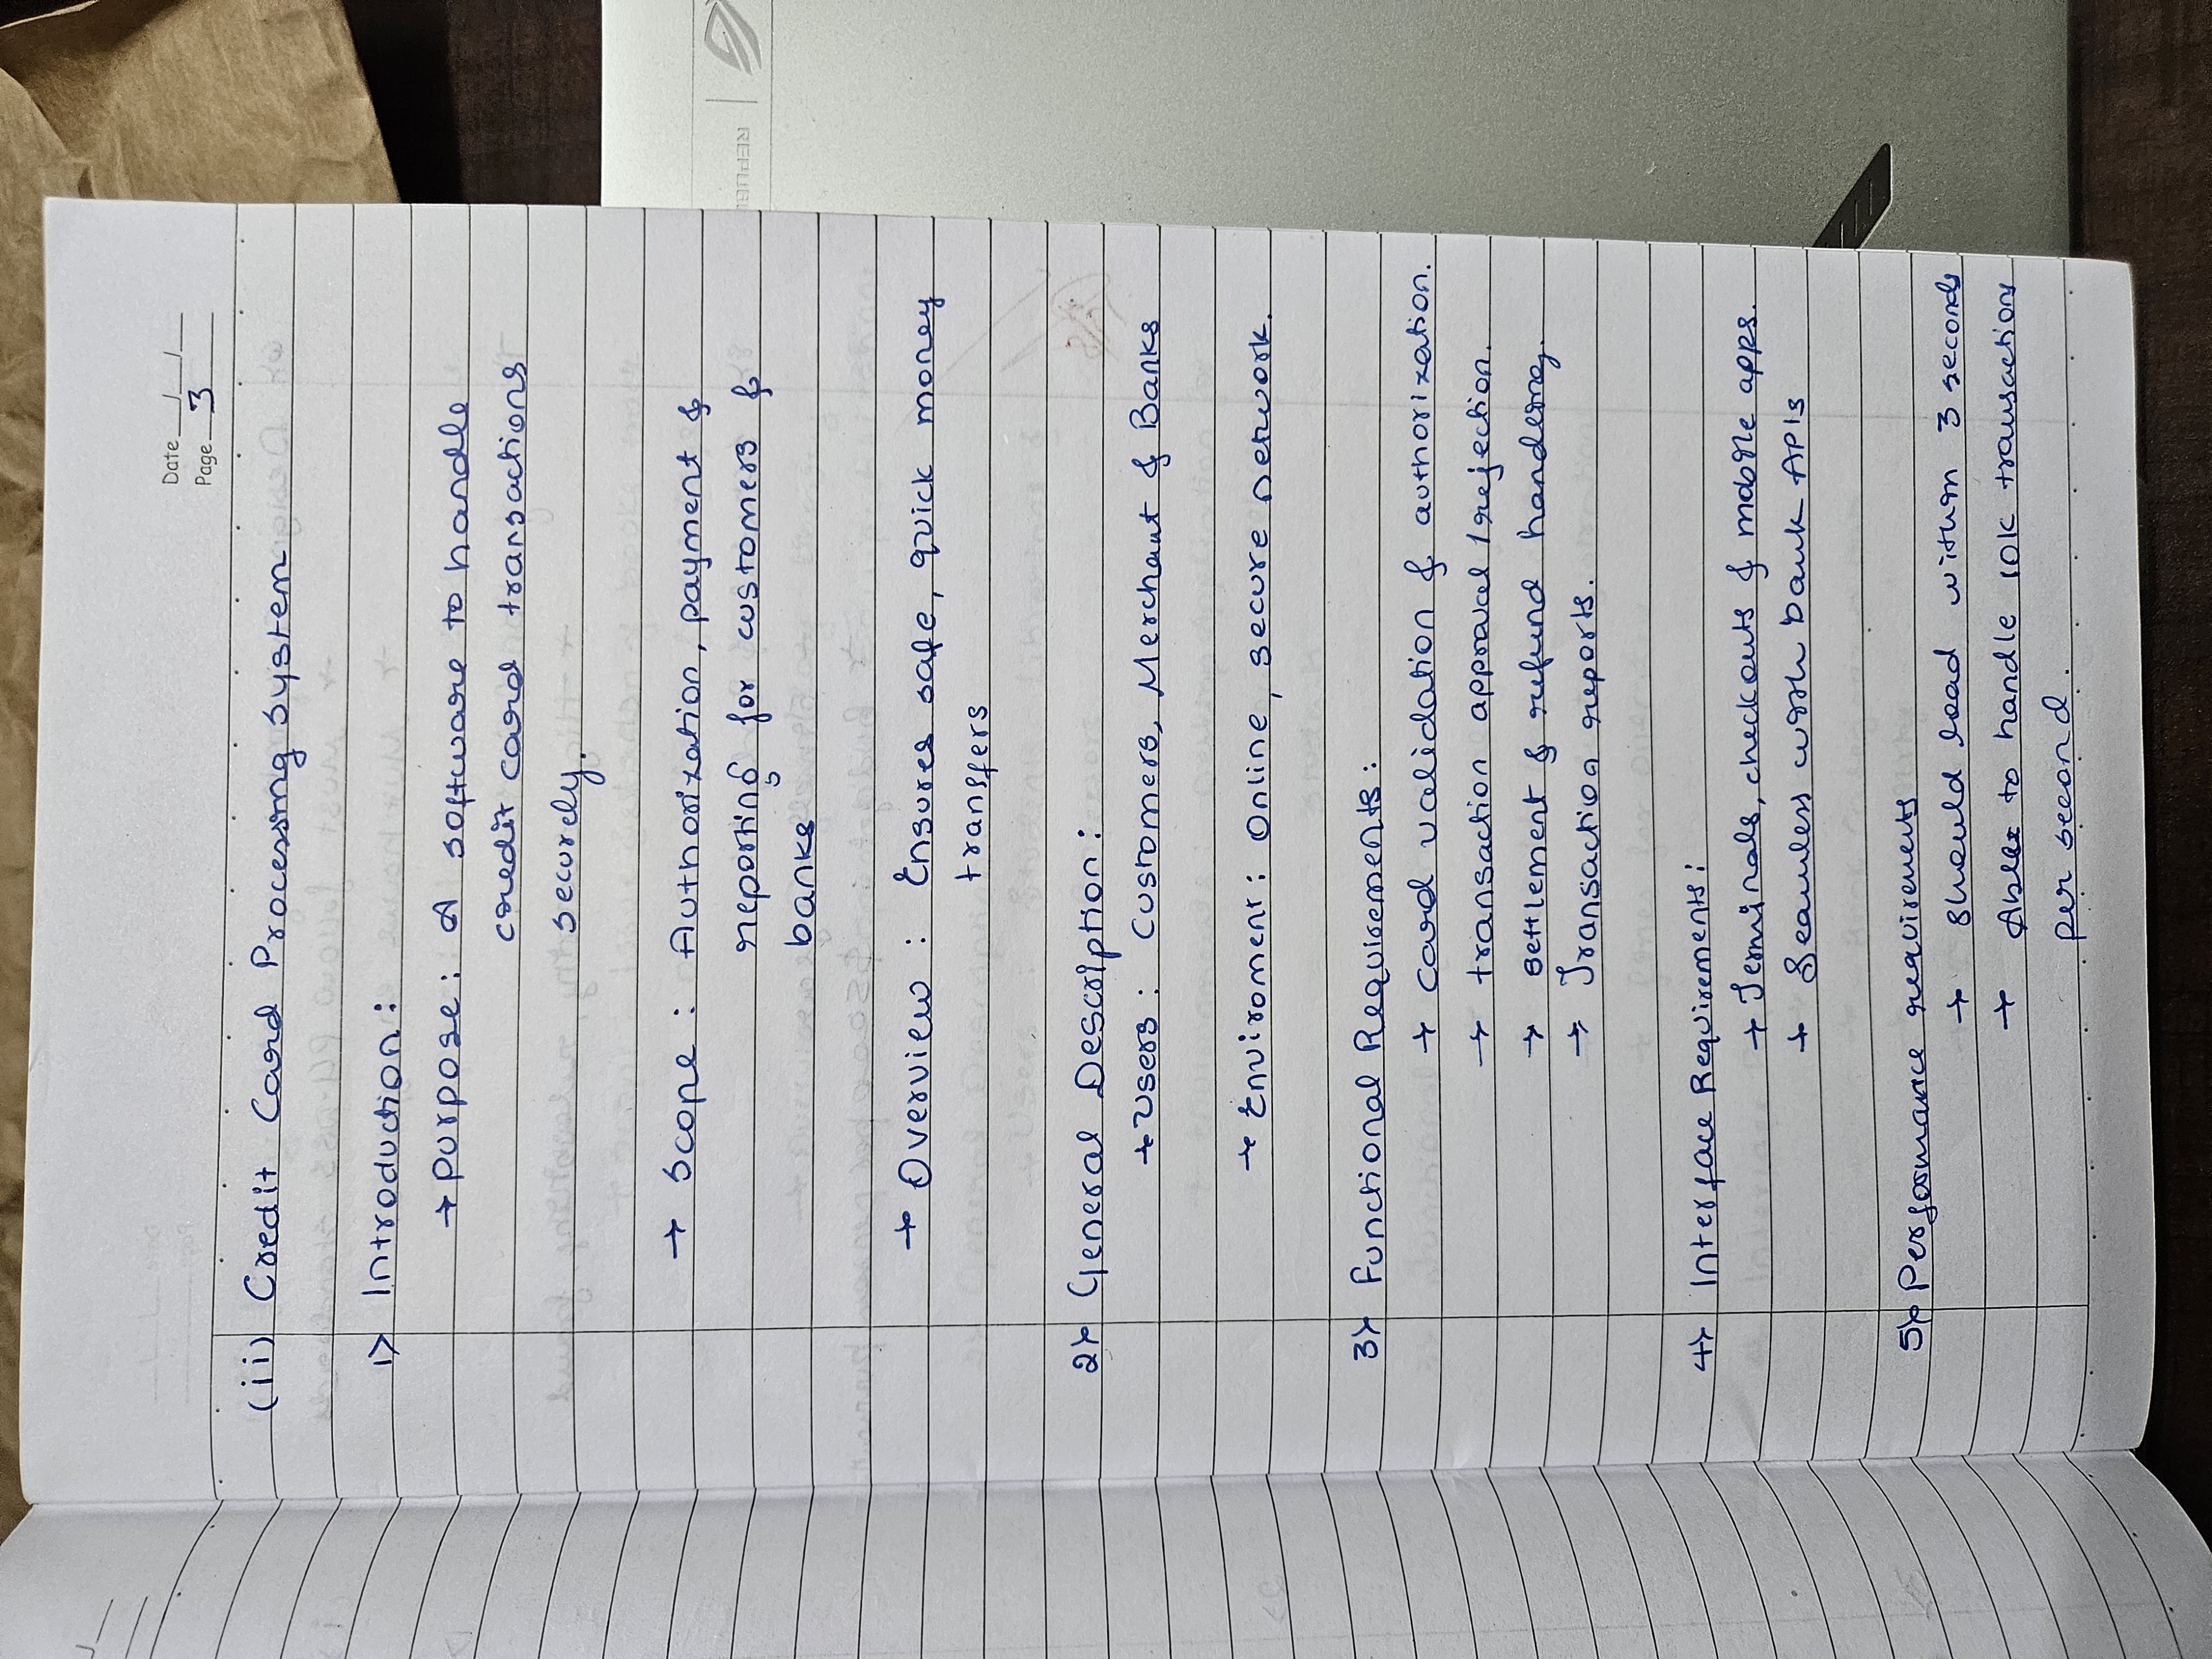 Date __/__/__
Page 3
(ii) Credit Card Processing System
1> Introduction:
→ Purpose: A software to handle
credit card transactions
securely.
→ Scope: Authorization, payment &
reporting for customers &
banks
→ Overview: Ensures safe, quick money
transfers
2> General Description:
→ Users: Customers, Merchant & Banks
→ Enviroment: Online, secure network.
3> Functional Requirements:
→ Card validation & authorization.
→ transaction approval / rejection.
→ settlement & refund handling.
→ Transaction reports.
4> Interface Requirements:
→ Terminals, checkouts & mobile apps.
→ Seamless with bank APIs
5> Performance requirements
→ should load within 3 seconds
→ Able to handle 10K transactions
per second.